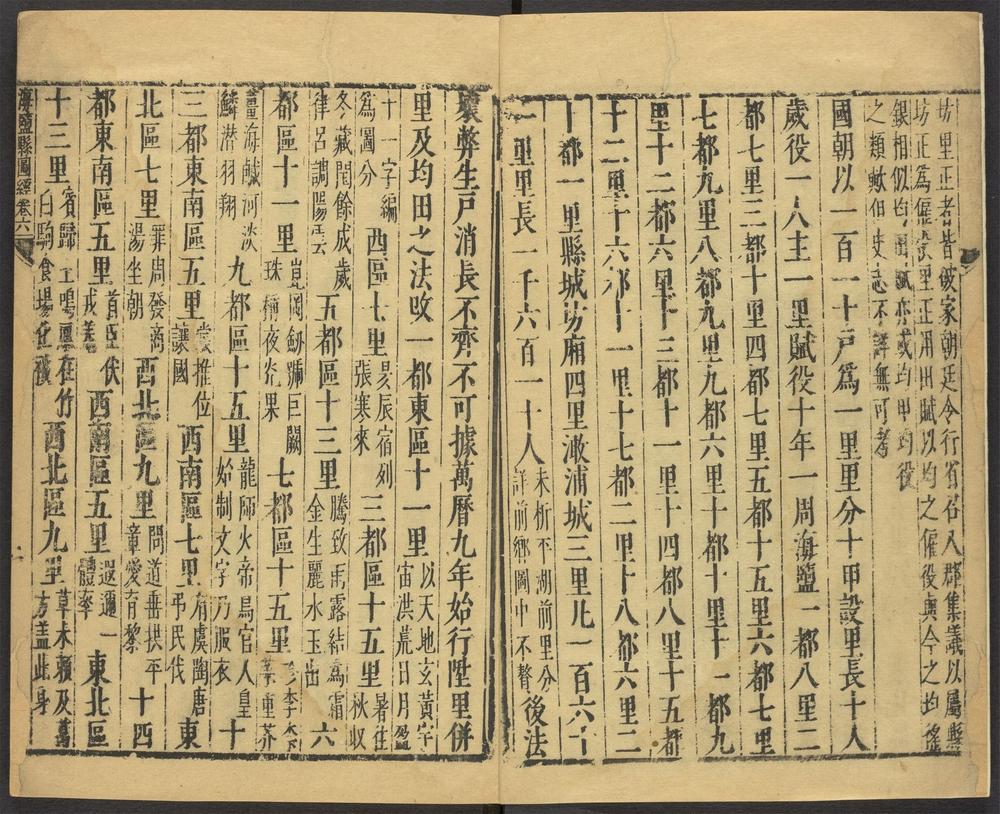 坊里正者皆破家朝廷令行省召八郡集議以屬縣
坊正爲催役里正用田賦以均之催役與今之均徭
銀相似均田賦亦或均甲均役
之類歟但 志不詳無可考
國朝以一百一十戶爲一里里分十甲設里長十人
歲役一人主一里賦役十年一周海鹽一都八里二
都七里三都十里四都七里五都十五里六都七里
七都九里八都九里九都六里十都十里十一都九
里十二都六里十三都十一里十四都八里十五都
十二里十六都十一里十七都二里十八都六里二
十都一里縣城坊廂四里澉浦城三里凡一百六十
一里里長一千六百一十人未析平湖前里分詳前鄉圖中不贅後法
壞弊生戶消長不齊不可據萬曆九年始行陞里併
里及均田之法改一都東區十一里以天地玄黃宇宙洪荒日月盈
十一字編爲圖分西區七里昃辰宿列張寒來三都區十五里暑往秋収
冬藏閏餘成歲律呂調陽雲五都區十三里騰致雨露結爲霜金生麗水玉出六
都區十一里崑岡劒號巨闕珠稱夜光果七都區十五里珍李柰菜重芥
薑海鹹河淡鱗潛羽翔九都區十五里龍師火帝鳥官人皇始制文字乃服衣十
三都東南區五里裳推位讓國西南區七里有虞陶唐弔民伐東
北區七里罪周發商湯坐朝西北區九里問道垂拱平章愛育黎十四
都東南區五里首臣伏戎羌西南區五里遐邇一體率東北區
十三里賓歸王鳴鳳在竹白駒食場化被西北區九里草木賴及萬方蓋此身
海鹽縣圖經 卷六